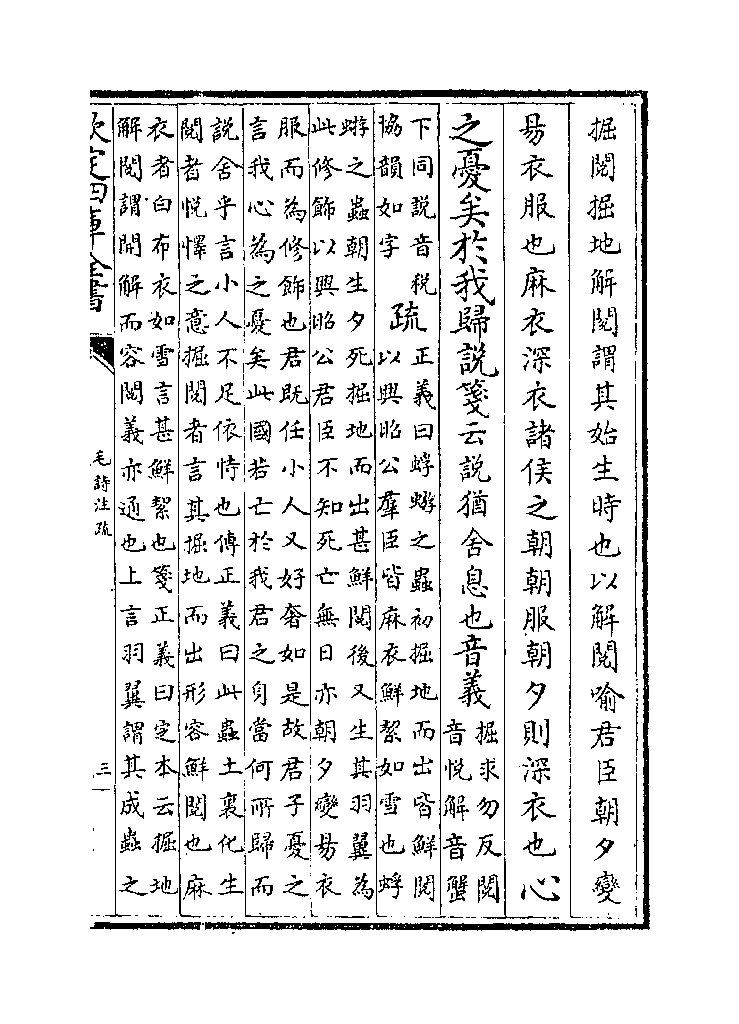 掘閱掘地解閱謂其始生時也以解閱喻君臣朝夕變
易衣服也麻衣深衣諸侯之朝朝服朝夕則深衣也心
之憂矣於我歸說箋云說猶舍息也音義
掘求勿反閱
音悅解音蟹
下同說音稅
協韻如字
疏
正義曰蜉蝣之蟲初掘地而出皆鮮閱
以興昭公羣臣皆麻衣鮮絜如雪也蜉
蝣之蟲朝生夕死掘地而出甚鮮閱後又生其羽翼為
此修飾以興昭公君臣不知死亡無日亦朝夕變易衣
服而為修飾也君既任小人又好奢如是故君子憂之
言我心為之憂矣此國若亡於我君之身當何所歸而
說舍乎言小人不足依恃也傳正義曰此蟲土裏化生
閱者悅懌之意掘閱者言其掘地而出形容鮮閱也麻
衣者白布衣如雪言甚鮮絜也箋正義曰定本云掘地
解閱謂開解而容閱義亦通也上言羽翼謂其成蟲之
欽定四庫全書
毛詩注疏
三